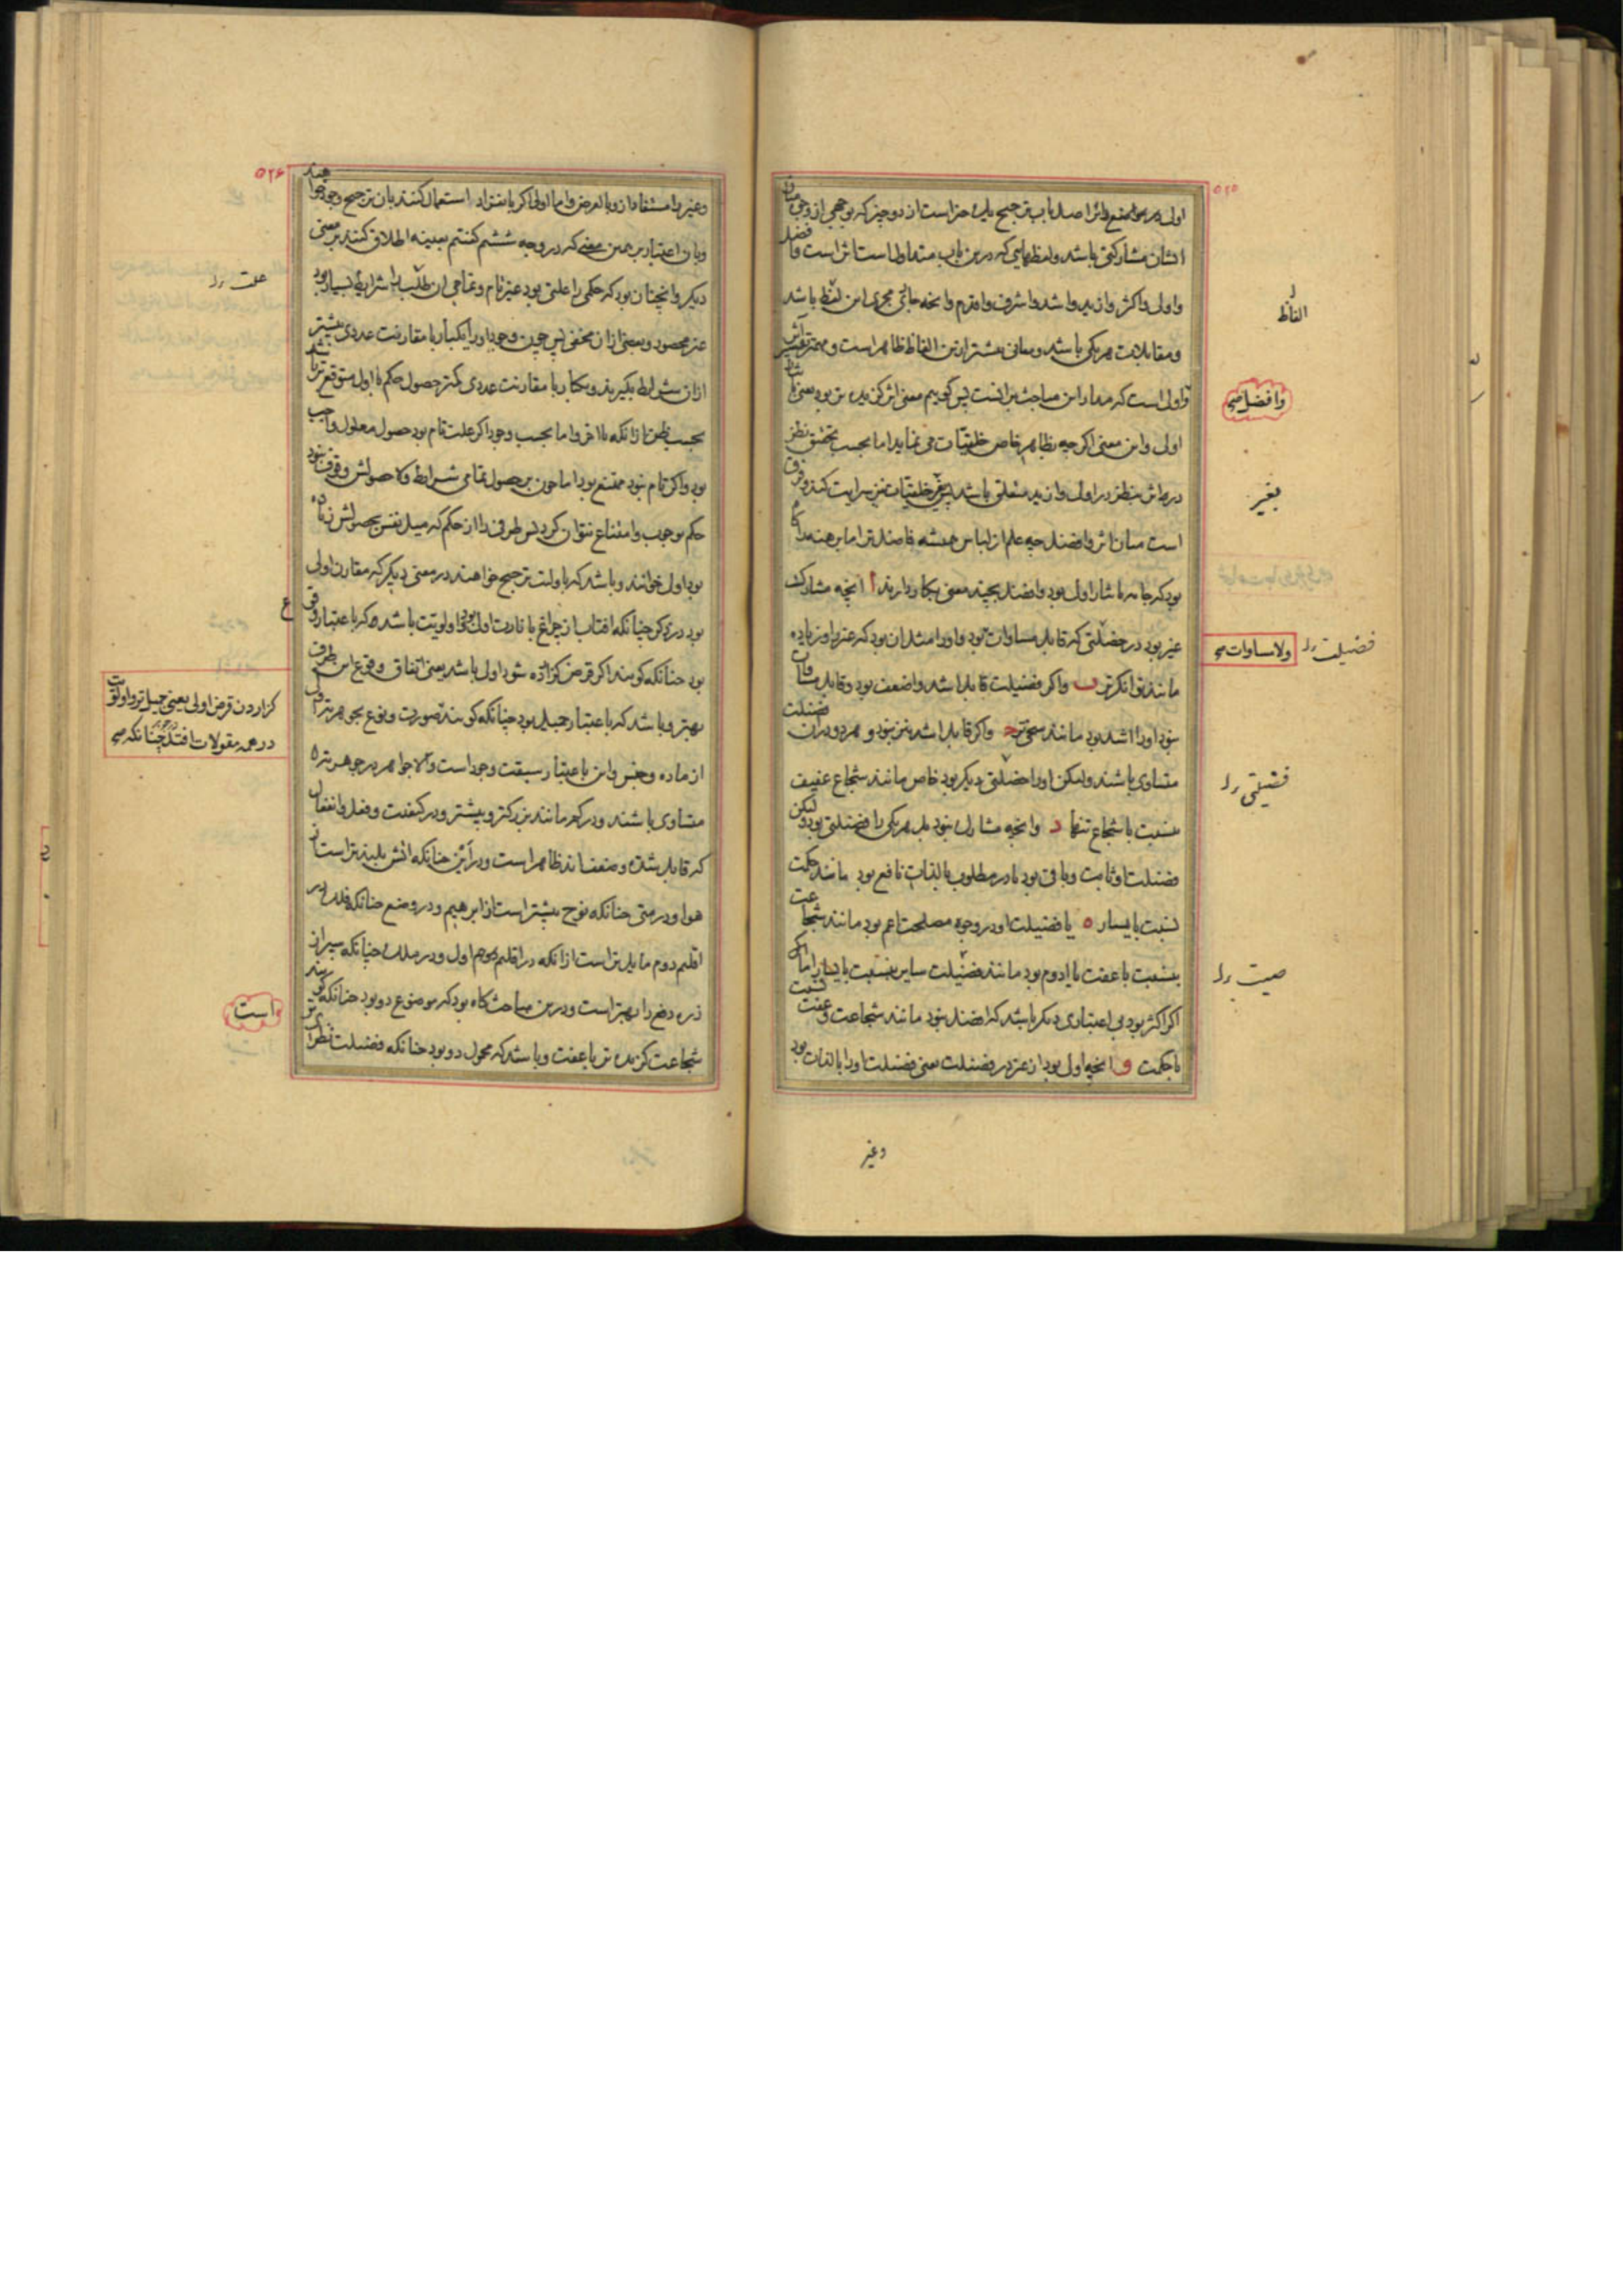 ٥٢٥
اول در مواضع اثر اصل باب ترجیح یک چیز است از دو چیز که بوجهی از وجوه میان
ایشان مشارکتی باشد و لفظهایی که درین باب متداول است اثر است و افضل
و اولی و اکثر و ازید و اشد و اشرف و اقدم و انچه جاری مجری این لفظ باشد
و مقابلات هر یکی باشد و معانی بیشتر ازین الفاظ ظاهر است و مهمتر اثر
و اولی است که مدار این مباحث بر انست پس گوییم معنی اثر گزیده تر بود یعنی
اولی و این معنی اگر چه بظاهر خاص خلقیات می نماید اما بحسب تحقیق نظر
در اثر نظر در اولی و ازید مشتمل باشد بغیر خلقیات نیز سرایت کند و فرق
است میان اثر و افضل چه علم از لباس همیشه فاضلتر اما برهنه را گاه
بود که جامه باثار اولی بود و افضل بچند معنی بکار دارند ا انچه مشارک
غیر بود در فضیلتی که قابل مساوات بود و او را مثل آن بود که غیر را و زیاده
مانند توانگرتر ب و اگر فضیلت قابل اشد و اضعف بود و قابل مساوات
نبود او را اشد بود مانند سخی تر ج و اگر قابل اشد نیز نبود و هر دو در آن
متساوی باشند و لیکن او را فضیلتی دیگر بود خاص مانند شجاع عفیف
بنسبت با شجاع تنها د و انچه مشارک نبود بل هر یکی را فضیلتی بود ولیکن
فضیلت او ثابت و باقی بود یا در مطلوب بالذات نافع بود مانند حکمت
نسبت با یسار ه یا فضیلت او در وجوه مصلحت اعم بود مانند شجاعت
بنسبت با عفت یا ادوم بود مانند فضیلت سایر بنسبت با دینار اما
اگر اکثر بود بی اعتباری دیگر باشد که افضل نبود مانند شجاعت و عفت نسبت
با حکمت و انچه اولی بود از غیر در فضیلت یعنی فضیلت او را بالذات بود
وغیر
الفاظ
وافضل صح
بغیر
ولا مساوات صح
فضیلت را
فضیلتی را
صیت را
٥٢۶
و غیر را مستفاد از و یا بالعرض و اما اولی اگر باشتراک استعمال کنند بان ترجیح وجود خواهند
و بان اعتبار بر همین معنی که در وجه ششم گفتیم بعینه اطلاق کنند بر معنی
دیگر و انچنان بود که حکمی را علتی بود غیر تام و تمامی آن طلب را شرایط بسیار بود
غیر محصور و بعضی از آن مخفی پس چون وجود او را یکبار با مقارنت عددی بیشتر
از آن شرایط بگیرند و یکبار با مقارنت عددی کمتر حصول حکم با اول متوقع تر باشد
بحسب ظن از انکه با اخر و اما بحسب وجود اگر علت تام بود حصول معلول واجب
بود و اگر تام نبود ممتنع بود اما چون بر حصول تمامی شرایط و لا حصولش وقوف نبود
حکم بوجوب و امتناع نتوان کرد پس طرفی را از حکم که میل نفس بحصولش زیاده
بود اولی خوانند و باشد که باولیت ترجیح خواهند در معنی دیگر که مقارن اولی
بود در ذکر چنانکه افتاب از چراغ بانارت اولی بود و اولویت باشد که باعتبار وقوع
بود چنانکه گویند اگر قرض گزارده شود اولی باشد یعنی اتفاق وقوع این طرف
بهتر و باشد که باعتبار جمیل بود چنانکه گویند صورت و نوع بجوهر تر اولی
از ماده و جنس و این باعتبار سبقت وجود است والا جواهر در جوهریت
متساوی باشند و در کم مانند بزرگتر و بیشتر و در کیفیت و فعل و انفعال
که قابل شدت و ضعف اند ظاهر است و در این چنانکه اتش بلندتر است از
هوا و در متی چنانکه نوح پیشتر است از ابرهیم و در وضع چنانکه فلک در
اقلیم دوم مایل تر است از انکه در اقلیم اول و در ملک چنانکه سپر از
زره دفع را بهتر است و درین مباحث گاه بود که موضوع دو بود چنانکه گویند
شجاعت گزیده تر یا عفت و باشد که محمول دو بود چنانکه فضیلت نظری
علت را
گزاردن قرض اولی یعنی جمیل تر و اولویت
در همه مقولات افتد در جوهر چنانکه صح
است